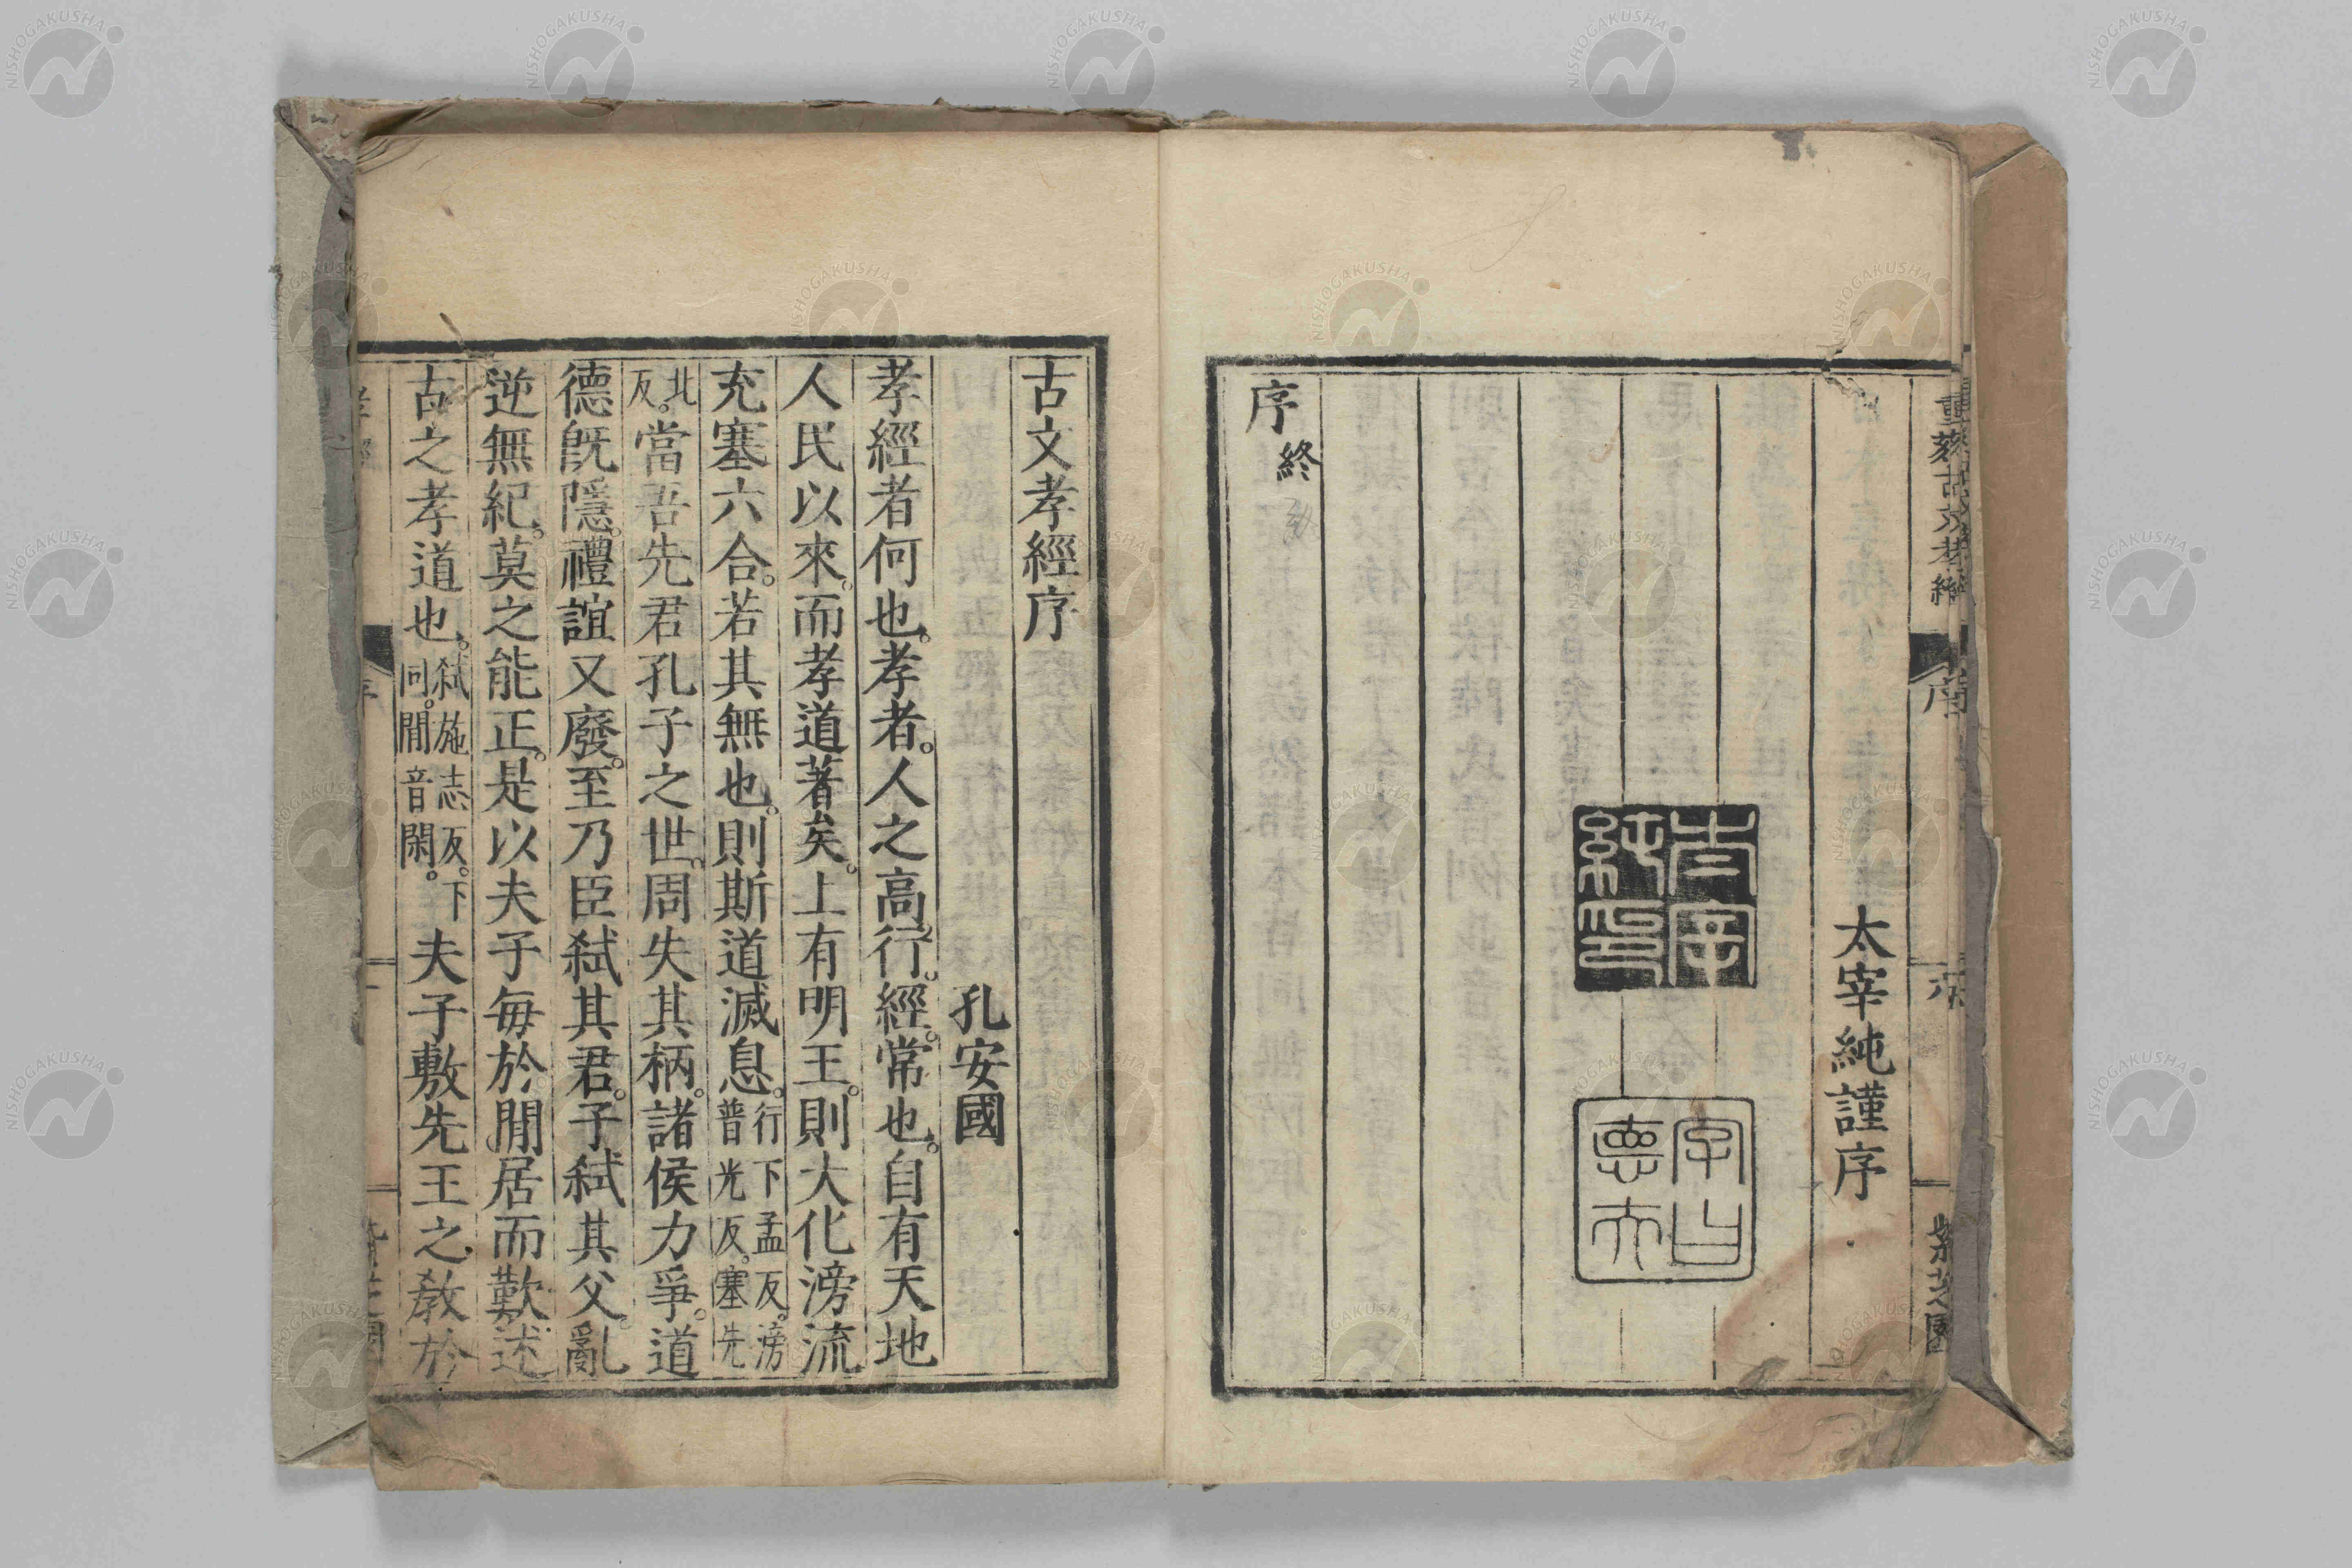 重彫古文孝經
序
六
紫芝園
太宰純謹序
太宰
純印
字曰
德夫
序終
古文孝經序
孔安國
孝經者何也。孝者。人之高行。經。常也。自有天地
人民以來。而孝道著矣。上有明王。則大化滂流
充塞六合。若其無也。則斯道滅息。行下孟反。滂普光反。塞先
北反。當吾先君孔子之世。周失其柄。諸侯力爭。道
德既隱。禮誼又廢。至乃臣弒其君。子弒其父。亂
逆無紀。莫之能正。是以夫子每於閒居而歎述
古之孝道也。弒施志反。下同。閒音閑。夫子敷先王之敎於
NISHOGAKUSHA